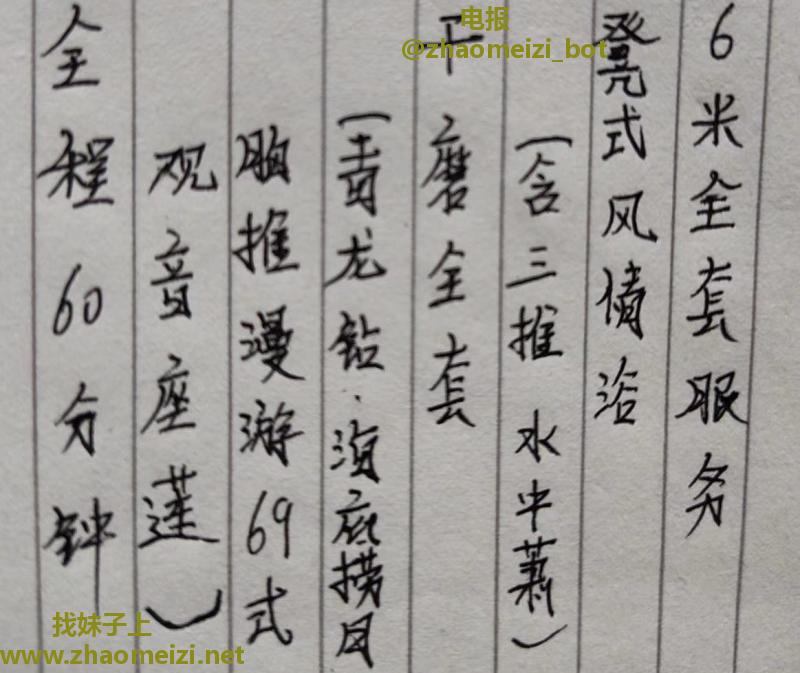 电报
@zhaomeizi_bot
6米全套服务
凳式风情浴
(含三推 水中萧)
干磨全套
(青龙钻.海底捞月
胸推漫游69式
观音座莲)
全程60分钟
找妹子上
www.zhaomeizi.net